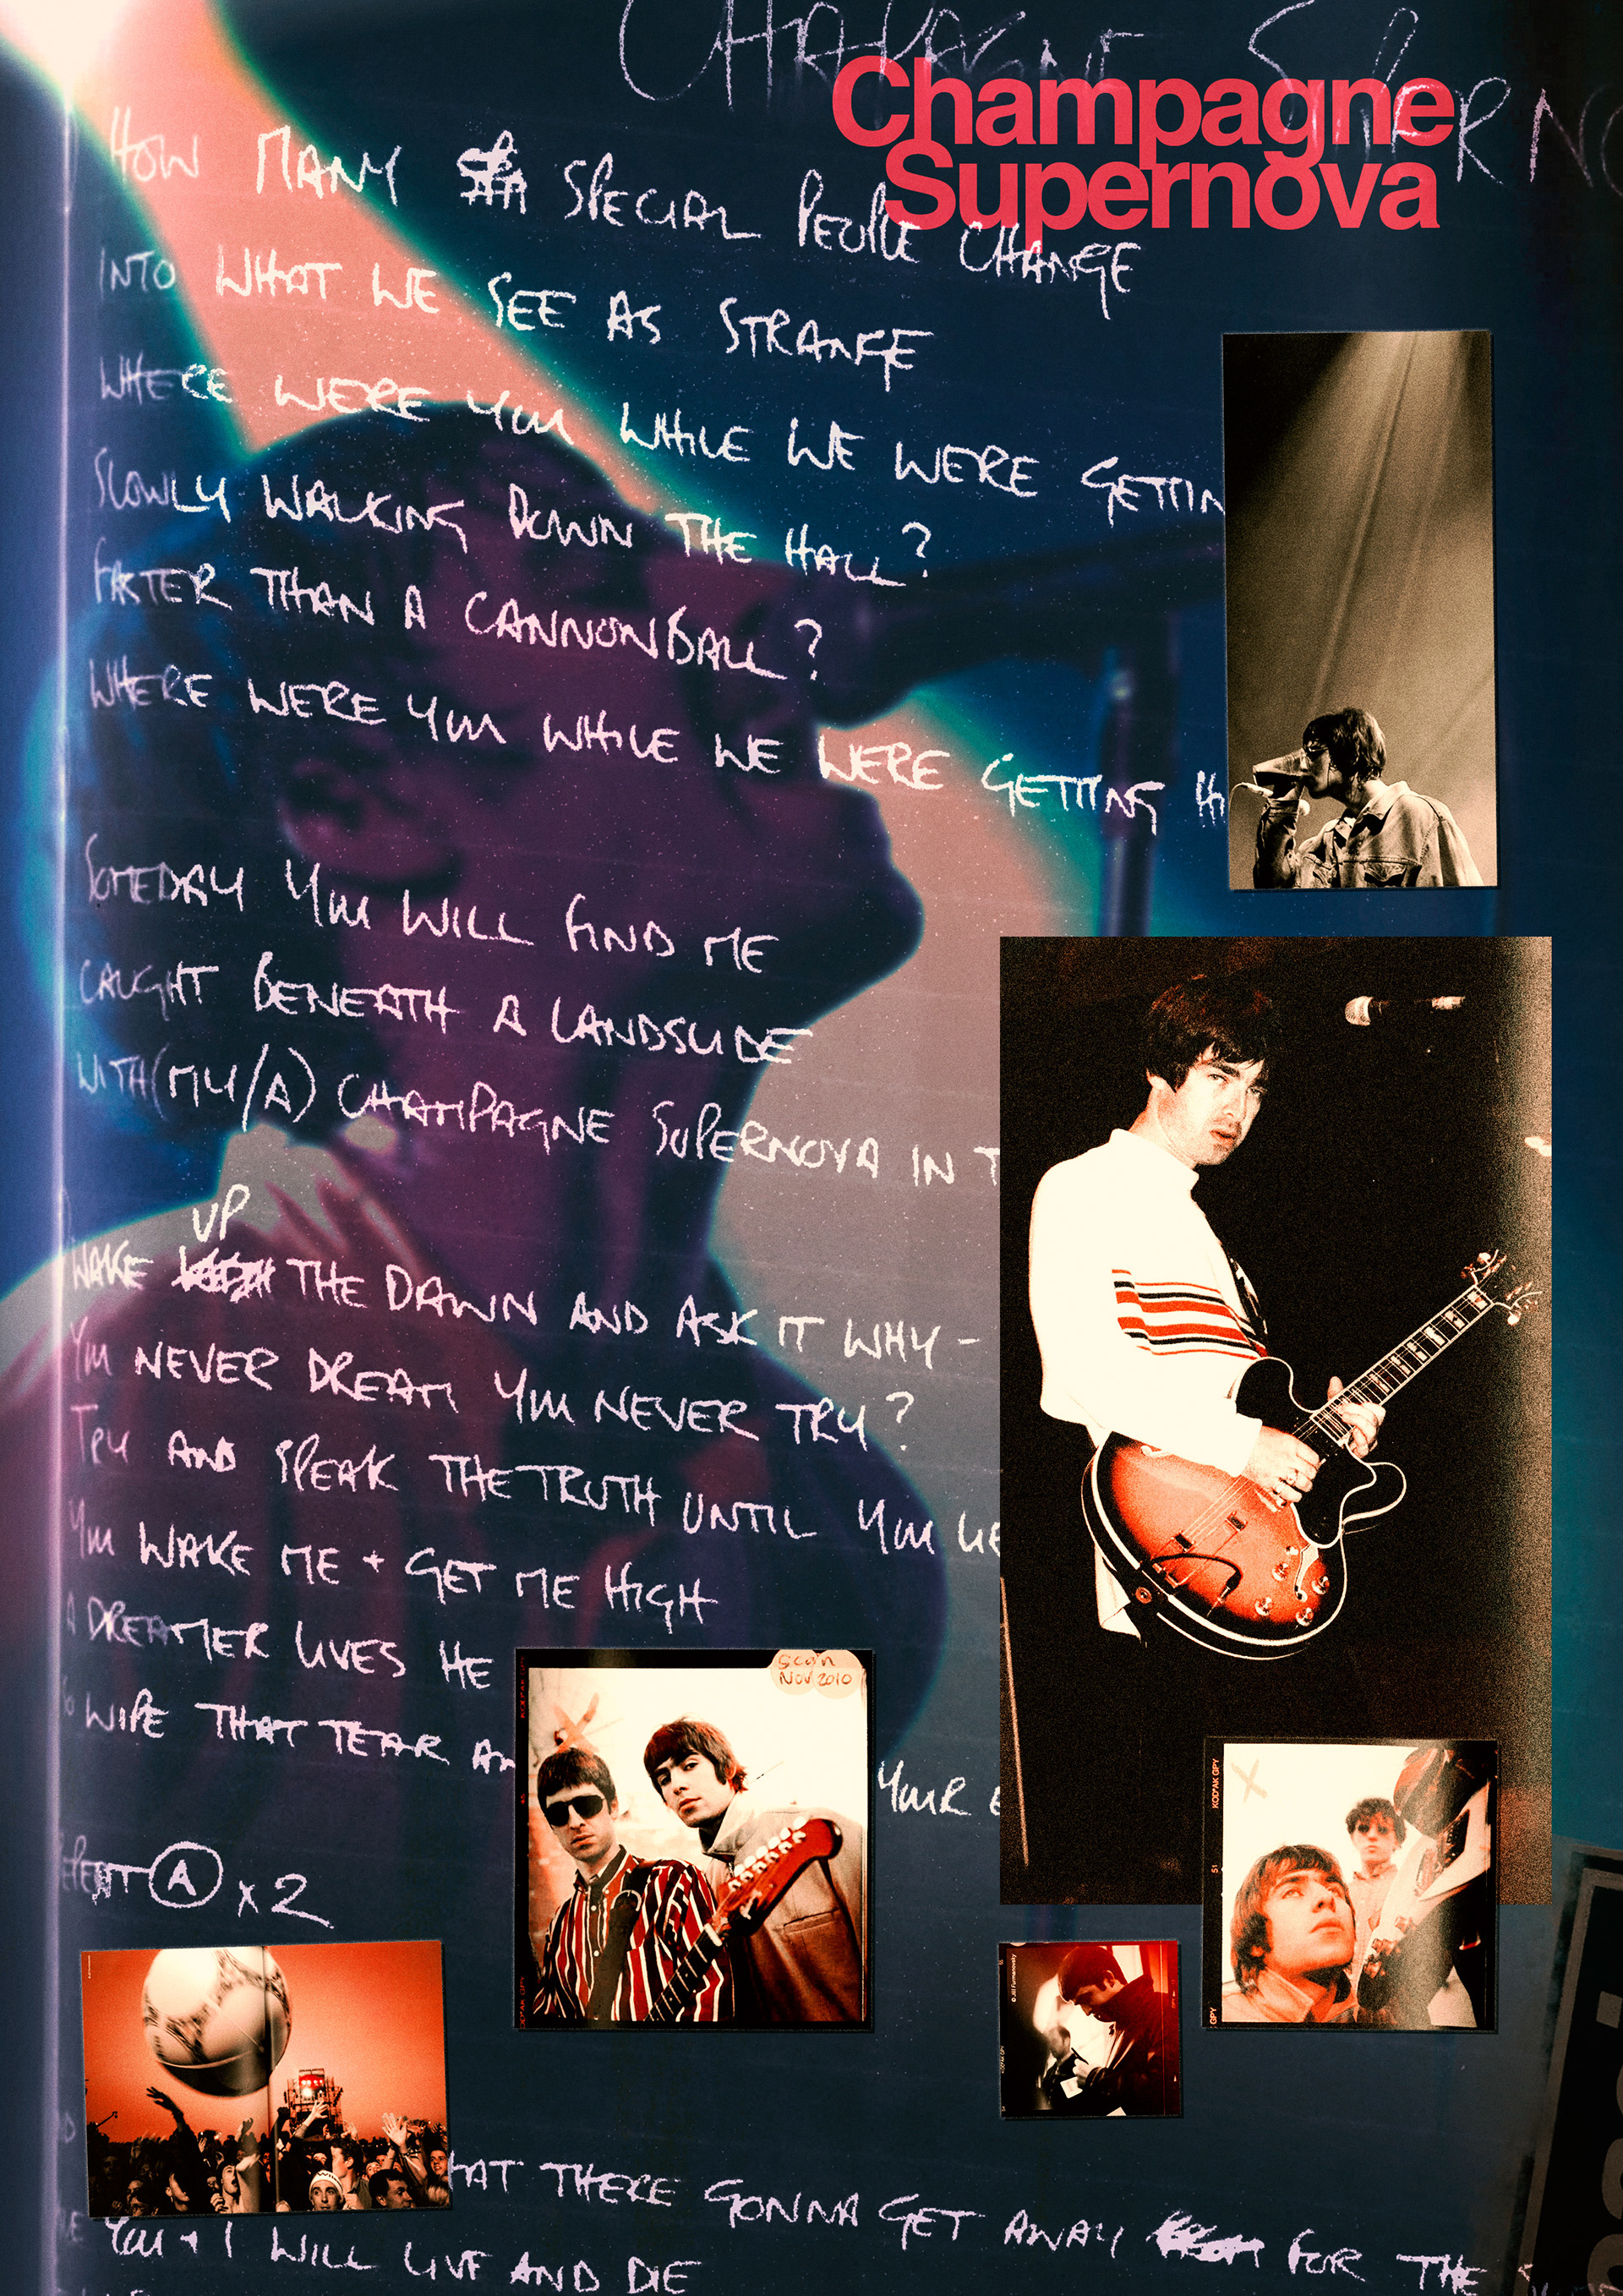 CHAMPAGNE SUPERNO
Champagne
Supernova
HOW MANY SPECIAL PEOPLE CHANGE
INTO WHAT WE SEE AS STRANGE
WHERE WERE YOU WHILE WE WERE GETTIN
SLOWLY WALKING DOWN THE HALL?
FASTER THAN A CANNONBALL?
WHERE WERE YOU WHILE WE WERE GETTING HI
SOMEDAY YOU WILL FIND ME
CAUGHT BENEATH A LANDSLIDE
WITH (MY/A) CHAMPAGNE SUPERNOVA IN T
UP
WAKE THE DAWN AND ASK IT WHY -
YOU NEVER DREAM YOU NEVER TRY?
TRY AND SPEAK THE TRUTH UNTIL YOU LIE
YOU WAKE ME + GET ME HIGH
A DREAMER LIVES HE
SO WIPE THAT TEAR AW YOUR E
Scan
NOV 2010
KODAK GPY
REPEAT A x 2
KODAK GPY
51
GPY
© Jill Furmanovsky
HAT THERE GONNA GET AWAY FOR THE S
YOU + I WILL LIVE AND DIE